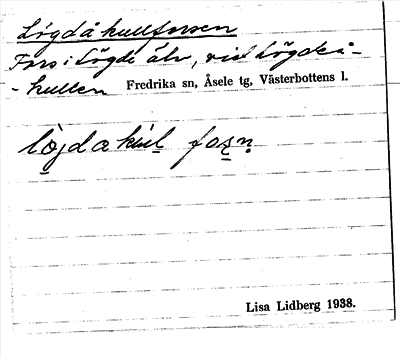 Lögdåkullforsen
Fors i Lögde älv, vid Lögdeå-
-kullen Fredrika sn, Åsele tg, Västerbottens l.
Lisa Lidberg 1938.